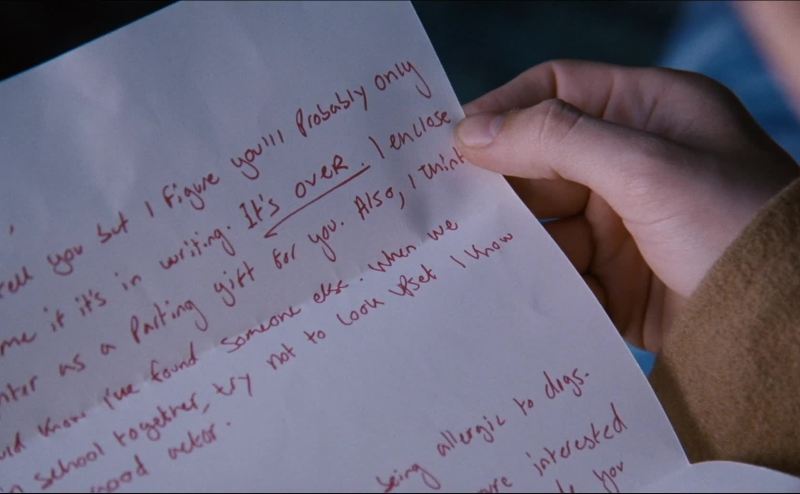 ,
tell you but I figure you'll probably only
me if it's in writing. It's over. I enclose
as a parting gift for you. Also, I think
know I've found someone else. When we
school together, try not to look upset I know
good actor.
being allergic to dogs.
more interested
you